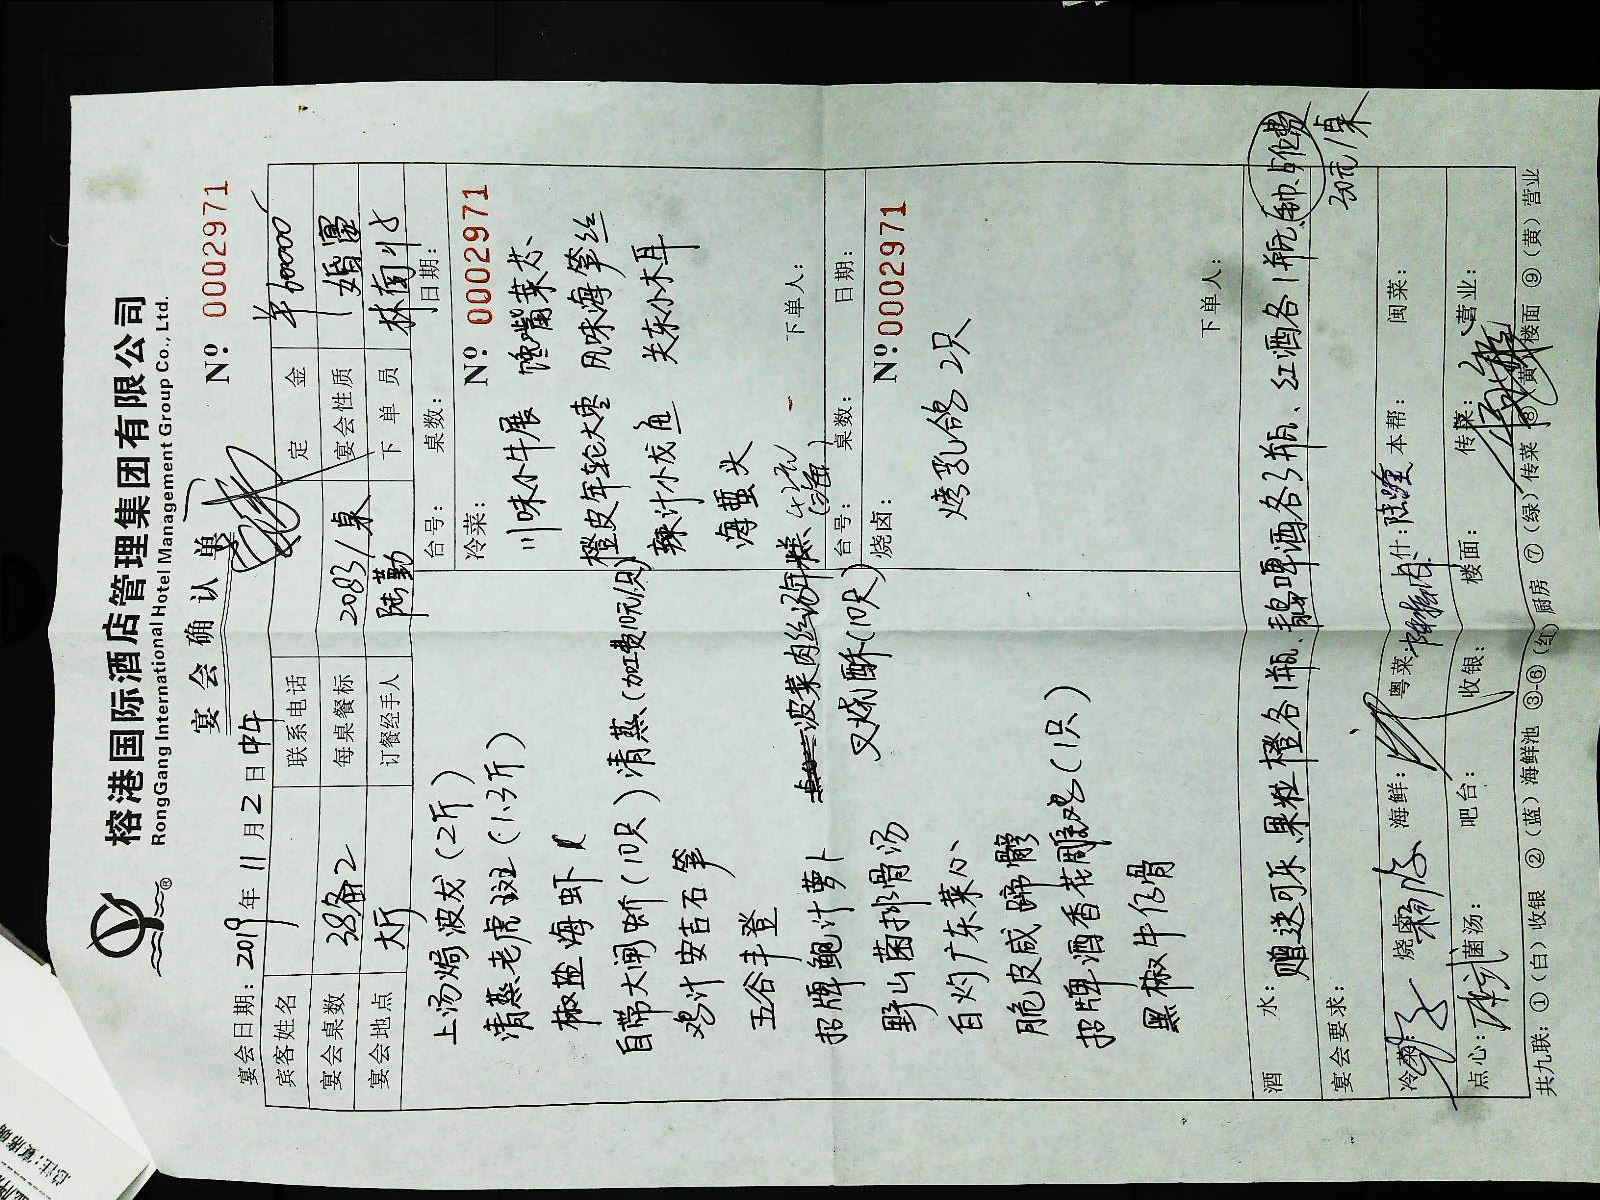 榕港国际酒店管理集团有限公司
RongGang International Hotel Management Group Co., Ltd.
®
宴会确认单
宴会日期：2019年11月2日中午 Nº 0002971
宾客姓名 联系电话 定金
宴会桌数 38备2 每桌餐标 2083/桌 宴会性质 婚宴
宴会地点 大厅 订餐经手人 陆勤 下单员
台号： 桌数： 日期：
冷菜： Nº 0002971
川味小牛展
橙皮年轮大枣 风味海笋丝
辣汁小成鱼 关东小木耳
海蜇头
下单人：
台号： 桌数： 日期：
烧卤： Nº 0002971
烤乳鸽2只
下单人：
上汤焗波龙（2斤）
清蒸老虎斑（1.3斤）
椒盐海虾
自带大闸蟹（10只）清蒸（加工费10元/只）
鸡汁安吉石笋
五谷丰登
招牌鲍汁萝卜 菠菜肉丝炒年糕
野山菌排骨汤 叉烧酥（10只）
白灼广东菜心
脆皮咸蹄髈
招牌酒香花雕鸡（1只）
黑椒牛仔骨
酒水： 赠送可乐、果粒橙各1瓶、啤酒各3瓶、红酒各1瓶
30元/桌
宴会要求：
冷菜： 烧卤： 海鲜： 粤菜： 什： 本帮： 闽菜：
点心： 菌汤： 吧台： 收银： 楼面： 传菜： 营业：
共九联：①（白）收银 ②（蓝）海鲜池 ③-⑥（红）厨房 ⑦（绿）传菜 ⑧（黄）楼面 ⑨（黄）营业